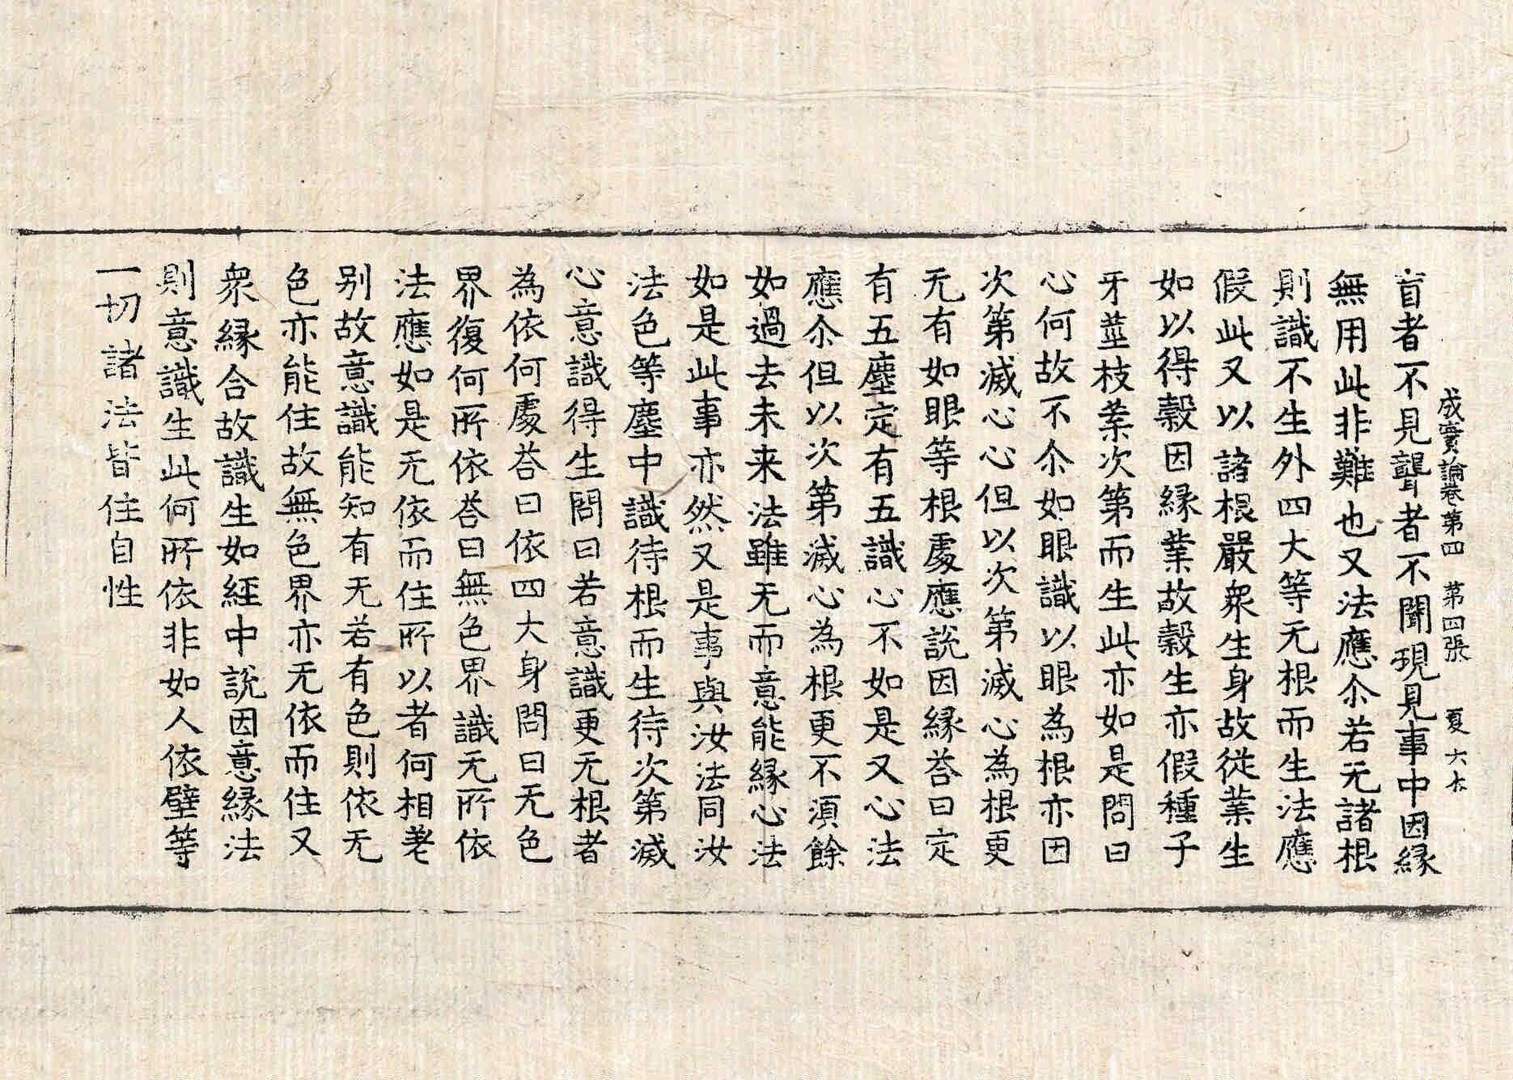 成實論卷第四　第四張　夏
盲者不見聾者不聞現見事中因緣
無用此非難也又法應尒若无諸根
則識不生外四大等无根而生法應
假此又以諸根嚴衆生身故從業生
如以得穀因緣業故穀生亦假種子
牙莖枝葉次第而生此亦如是問曰
心何故不尒如眼識以眼為根亦因
次第滅心心但以次第滅心為根更
无有如眼等根處應說因緣荅曰定
有五塵定有五識心不如是又心法
應尒但以次第滅心為根更不湏餘
如過去未来法雖无而意能緣心法
如是此事亦然又是事與汝法同汝
法色等塵中識待根而生待次第滅
心意識得生問曰若意識更无根者
為依何處荅曰依四大身問曰无色
界復何所依荅曰無色界識无所依
法應如是无依而住所以者何相差
别故意識能知有无若有色則依无
色亦能住故無色界亦无依而住又
衆緣合故識生如經中說因意緣法
則意識生此何所依非如人依壁等
一切諸法皆住自性